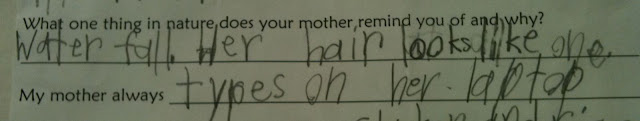 What one thing in nature,does your mother,remind you of and,why?
Water fall. Her hair looks like one.
My mother always types on her. laptop